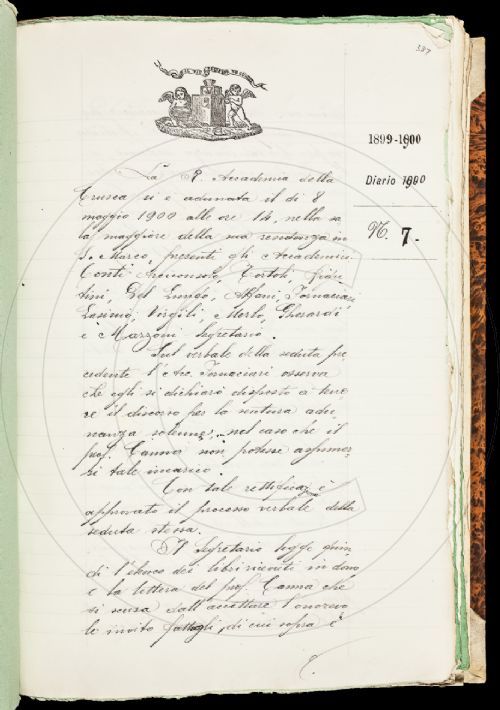 337
1899-1900
Diario 1900
N. 7.
La R. Accademia della
Crusca si è adunata il dì 8
maggio 1900 alle ore 14, nella sa
la maggiore della sua residenza in
S. Marco, presenti gli Accademici
Conti Arciconsolo, Tortoli,
tini, Del Lungo, Alfani, Tornaciari
Virgilj, Merlo, Gherardi
e Mazzoni Segretario.
Sul verbale della seduta pre
cedente l'Acc. Tornaciari osserva
che egli si dichiarò disposto a tene
re il discorso per la ventura adu
nanza solenne, nel caso che il
prof. Canna non potesse assumer
si tale incarico.
Con tale rettificaz. è
approvato il processo verbale della
seduta stessa.
Il Segretario legge quin
di l'elenco dei libri ricevuti in dono
e la lettera del prof. Canna che
si scusa dall'accettare l'onorevo
le invito fattogli, di cui sopra è